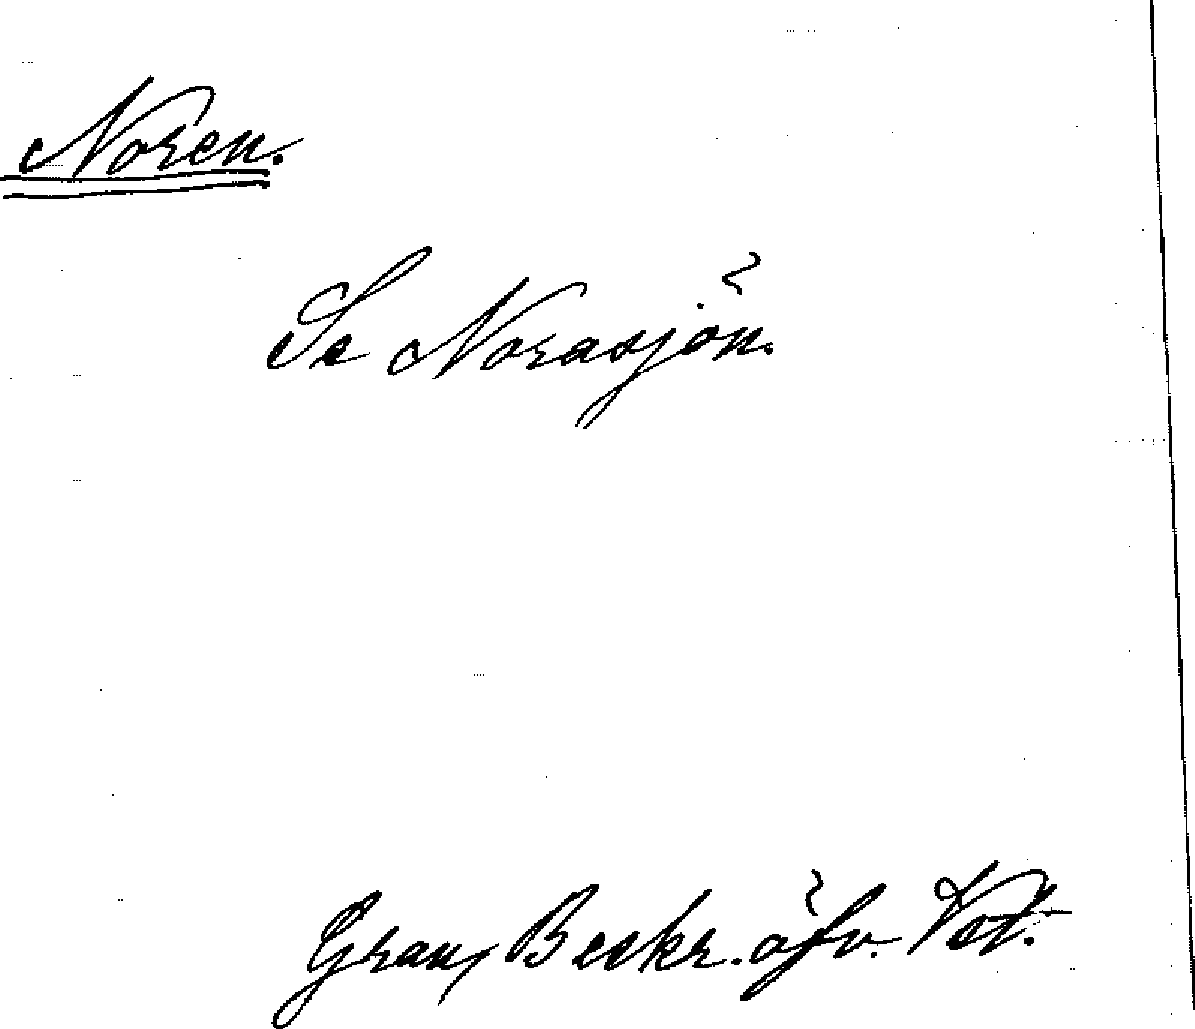 Noren.
Se Norasjön.
Gran, Beskr. öfv. Vst.